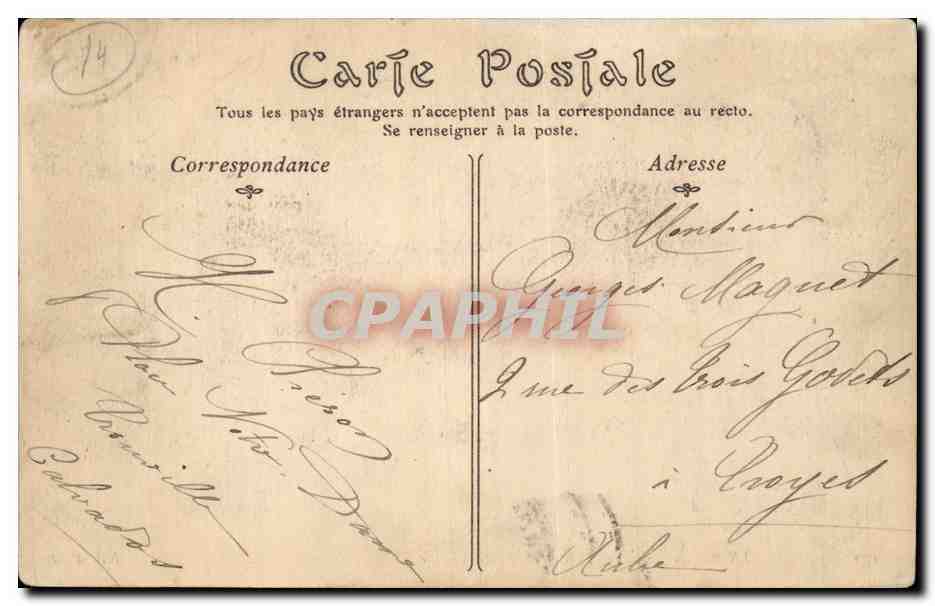 14
Carte Postale
Tous les pays étrangers n'acceptent pas la correspondance au recto.
Se renseigner à la poste.
Correspondance
Adresse
H. Pierson
Place Notre-Dame
Trouville
Calvados
Monsieur
Georges Maquet
2 rue des Trois Godets
à Troyes
Aube
CPAPHIL